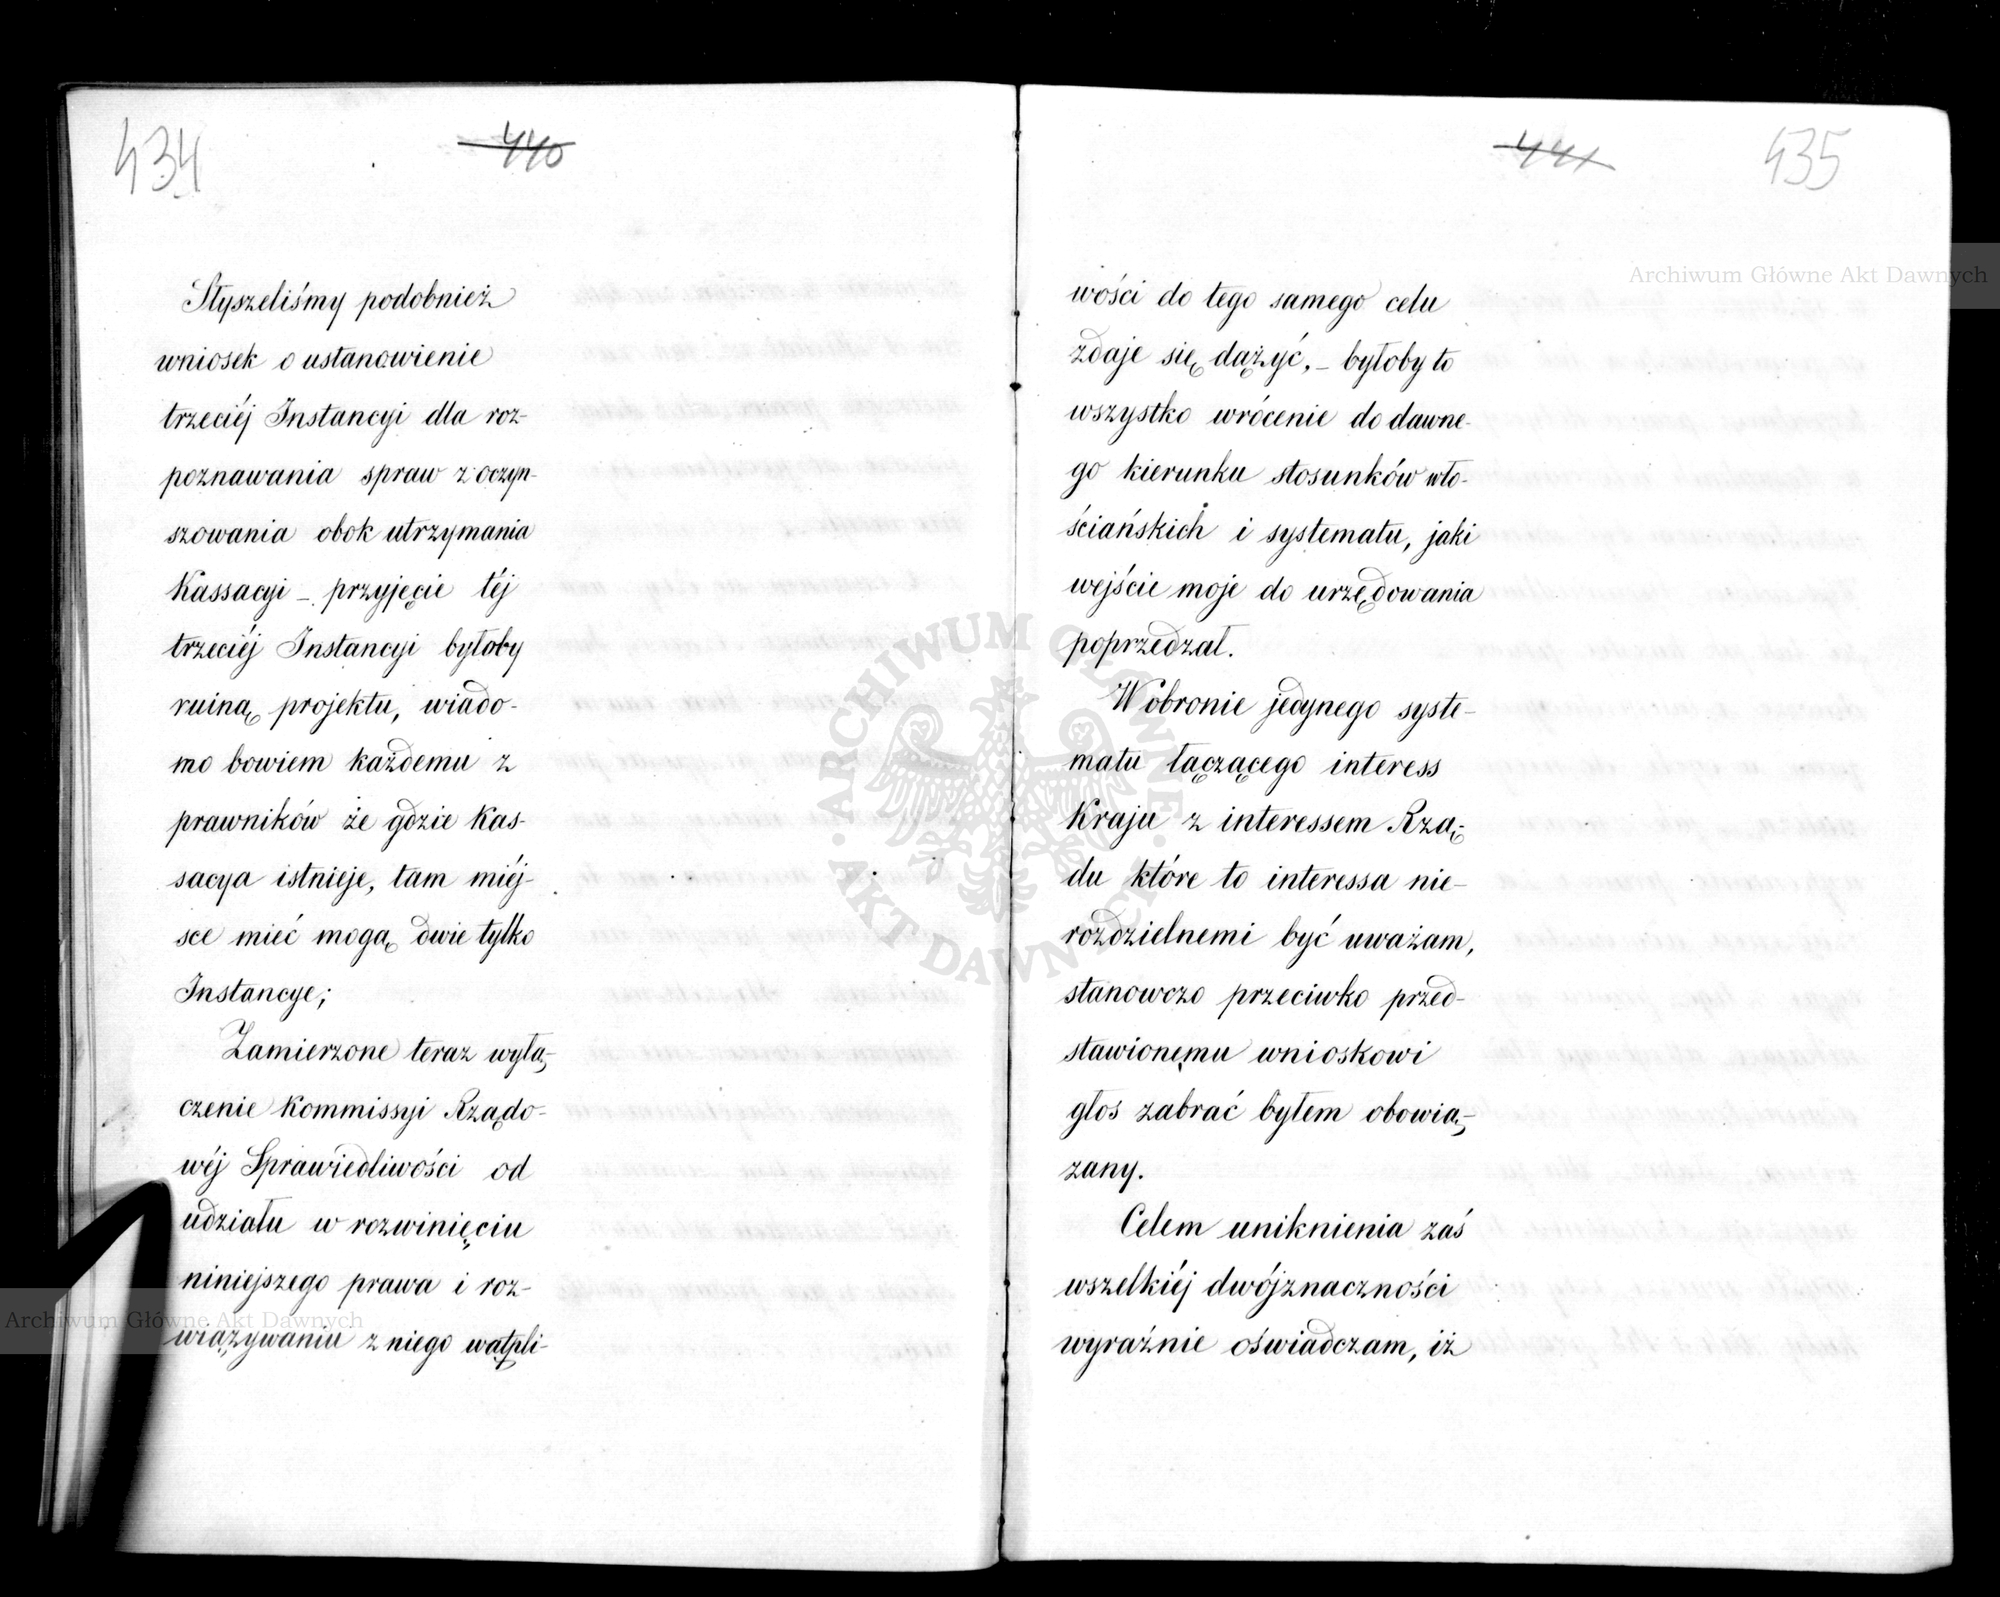 434
440
Słyszeliśmy podobnież
wniosek o ustanowienie
trzeciéj Instancyi dla roz-
poznawania spraw z oczyn-
szowania obok utrzymania
Kassacyi – przyjęcie téj
trzeciéj Instancyi byłoby
ruiną projektu, wiado-
mo bowiem każdemu z
prawników że gdzie Kas-
sacya istnieje, tam miéj-
sce mieć mogą dwie tylko
Instancye;
Zamierzone teraz wyłą-
czenie Kommissyi Rządo-
wéj Sprawiedliwości od
udziału w rozwinięciu
niniejszego prawa i roz-
wiązywaniu z niego wątpli-
441
435
wości do tego samego celu
zdaje się dążyć, – byłoby to
wszystko wrócenie do dawne-
go kierunku stosunków wło-
ściańskich i systematu, jaki
wejście moje do urzędowania
poprzedzał.
W obronie jedynego syste-
matu łączącego interess
Kraju z interessem Rzą-
du które to interessa nie-
rozdzielnemi być uważam,
stanowczo przeciwko przed-
stawionemu wnioskowi
głos zabrać byłem obowią-
zany.
Celem uniknienia zaś
wszelkiéj dwójznaczności
wyraźnie oświadczam, iż
Archiwum Główne Akt Dawnych
Archiwum Główne Akt Dawnych
ARCHIWUM GŁÓWNE
AKT DAWNYCH